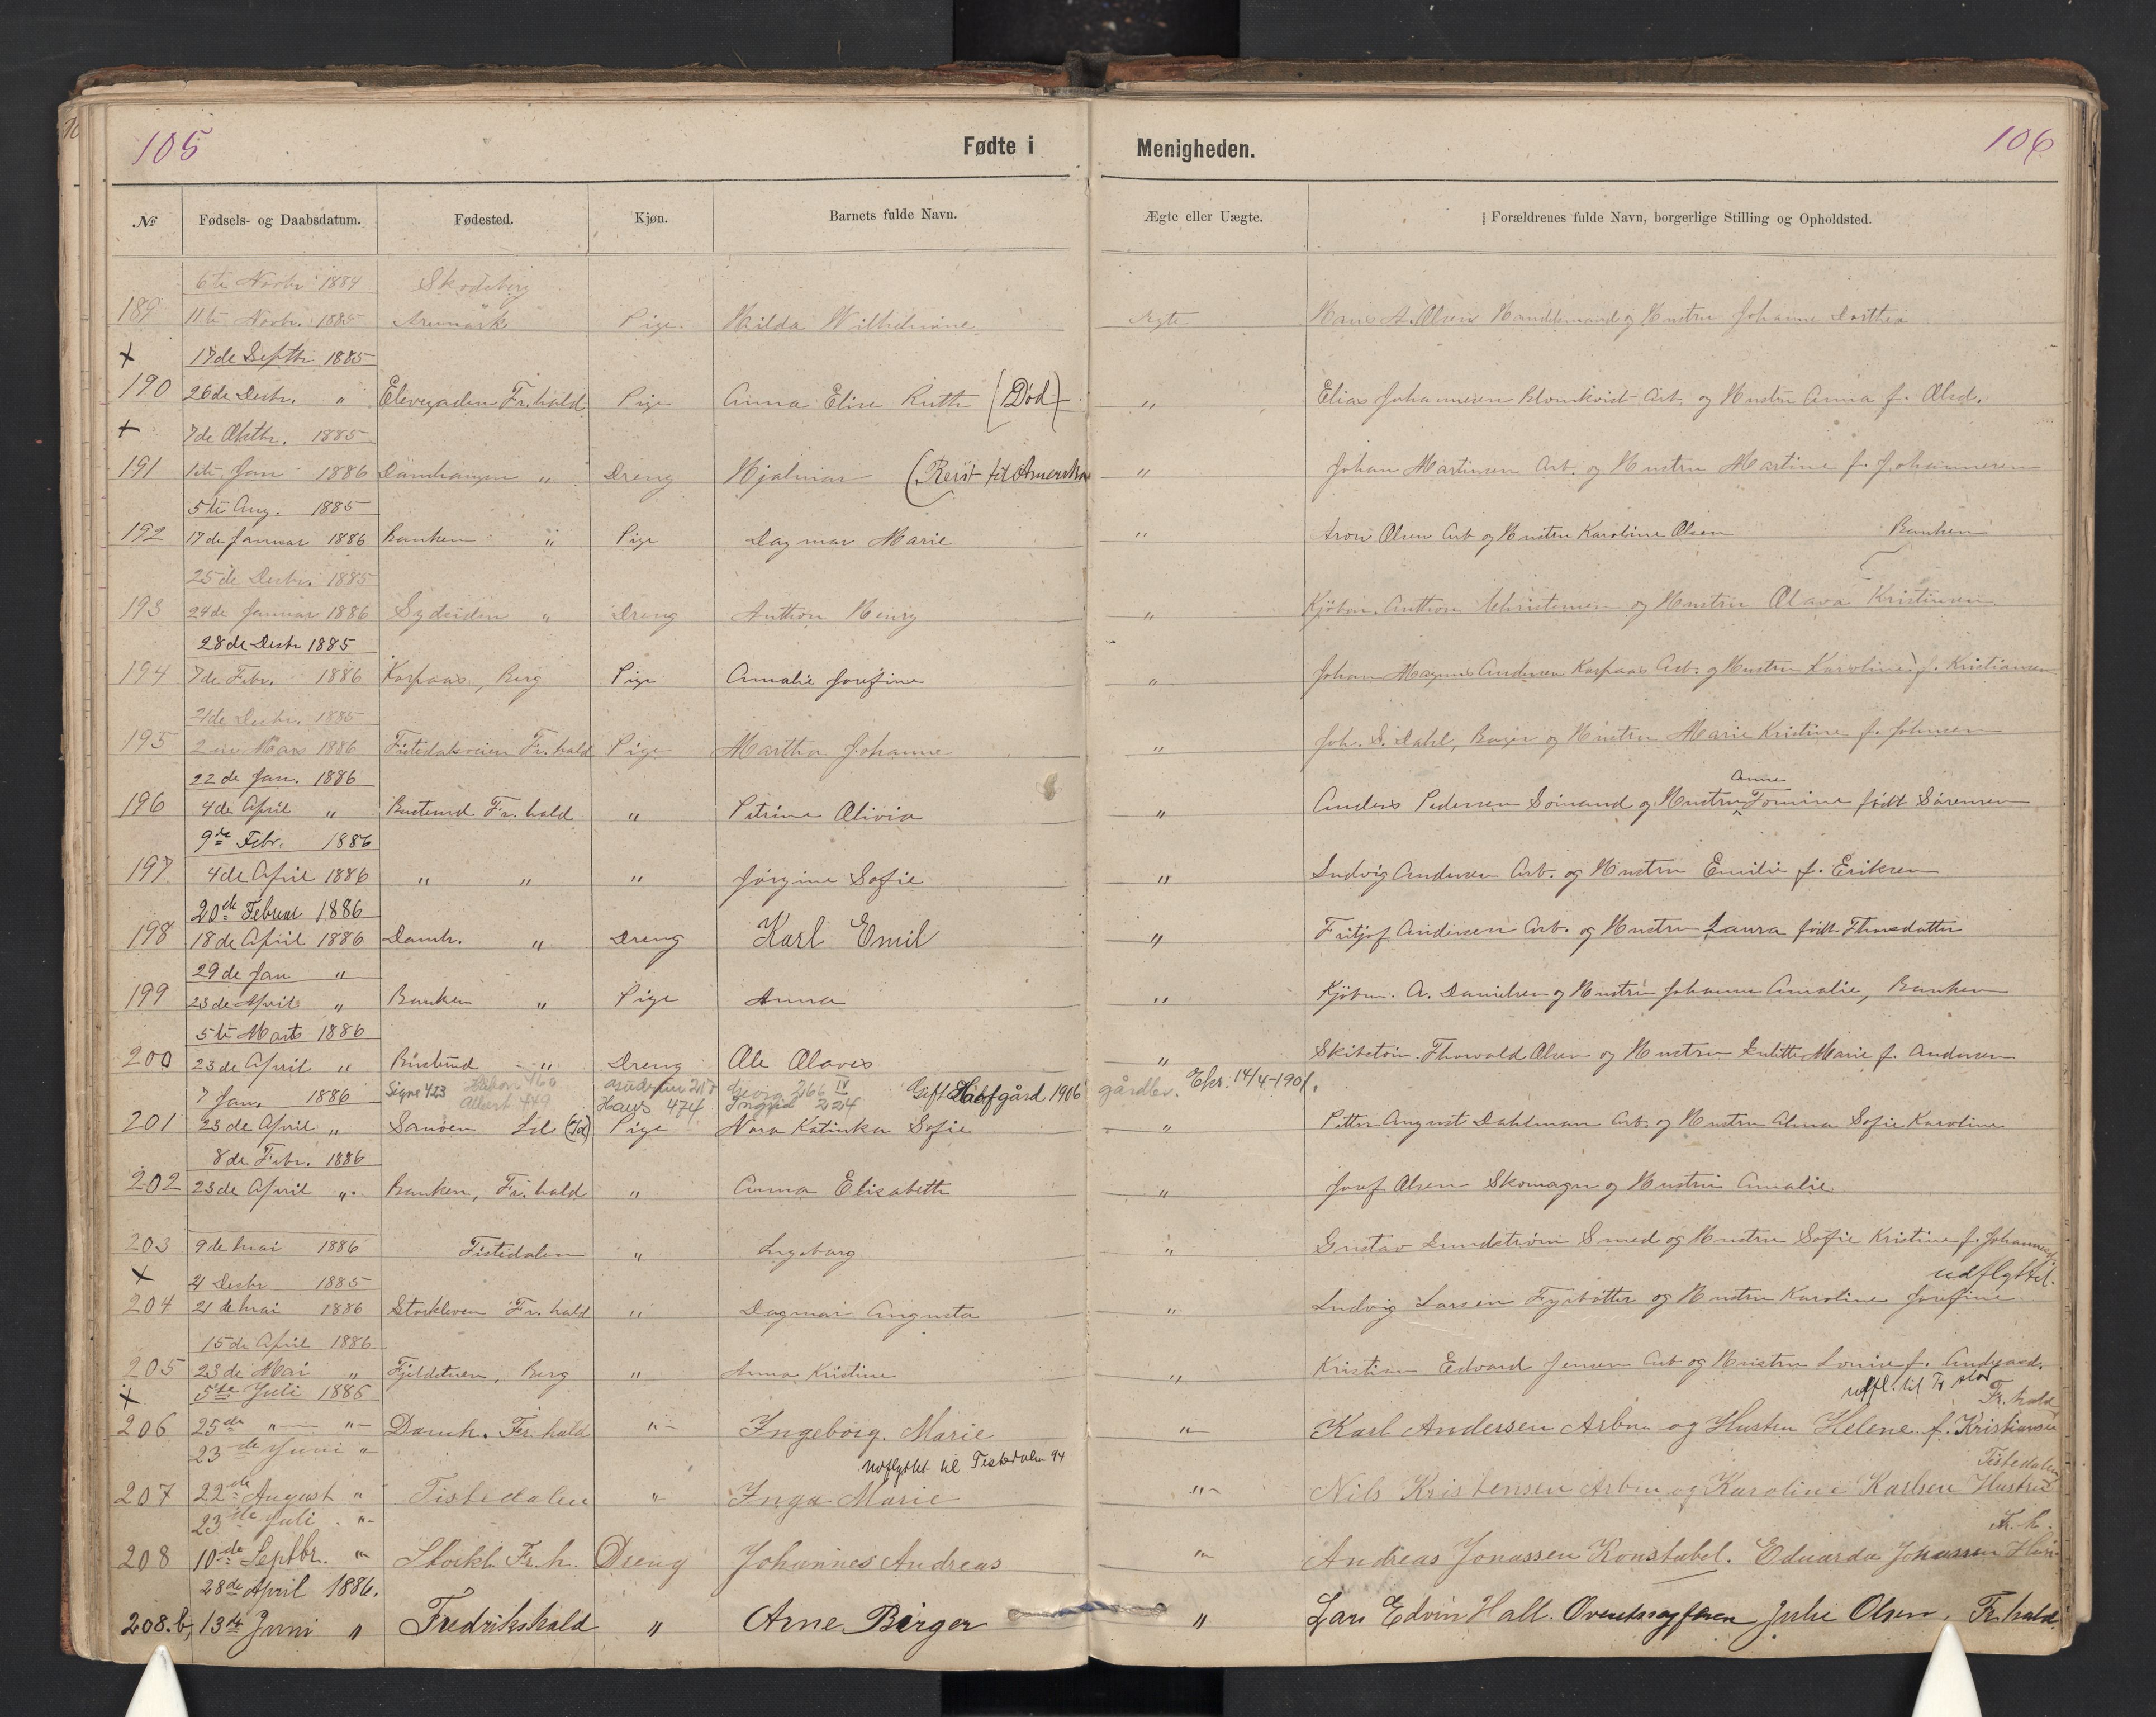 105
Fødte i
Menigheden.
106
№ Fødsels- og Daabsdatum. Fødested. Kjøn. Barnets fulde Navn. Ægte eller Uægte. Forældrenes fulde Navn, borgerlige Stilling og Opholdsted.
6te Novbr 1884 Skodsberg
189 11te Novbr. 1885 Aremark Pige. Hilda Wilhelmine Ægte Hans A. Olsen Handelsmand og Hustru Johanne Dorthea
+ 17de Septbr 1885
190 26de Decbr. " Elvegaden Fr.hald Pige Anna Elise Ruth (Død) " Elias Johannesen Blomkvist Arb. og Hustru Anna f. Olsd.
+ 7de Oktbr. 1885
191 1ste Jan 1886 Damhaugen " Dreng Hjalmar (Reist til Amerika " Johan Martinsen Arb. og Hustru Martine f. Johannesen
5te Aug. 1885
192 17de Januar 1886 Banken " Pige Dagmar Marie " Aron Olsen Arb og Hustru Karoline Olsen Banken
25de Decbr. 1885
193 24de Januar 1886 Sydsiden " Dreng Anthon Henry " Kjøbm. Anthon Christensen og Hustru Olava Kristensen
28de Decbr 1885
194 7de Febr. 1886 Korpaas, Berg Pige Amalie Josefine " Johan Magnus Andersen Korpaas Arb. og Hustru Karoline f. Kristiansen
21de Decbr. 1885
195 2den Mars 1886 Tistedalsveien Fr.hald Pige Martha Johanne " Joh. S. Dahl, Bager og Hustru Marie Kristine f. Johnsen
22de Jan. 1886
196 4de April " Busterud Fr.hald " Petrine Olivia " Anders Pedersen Sømand og Hustru Anne Tomine født Sørensen
9de Febr. 1886
197 4de April 1886 " " " Jørgine Sofie " Ludvig Andersen Arb. og Hustru Emilie f. Eriksen
20de Februar 1886
198 18de April 1886 Damh. " Dreng Karl Emil " Fritjof Andersen Arb. og Hustru Laura født Thorsdatter
29de Jan "
199 23de April " Banken " Pige Anna " Kjøbm. A. Danielsen og Hustru Johanne Amalie, Banken
5te Marts 1886
200 23de April " Busterud " Dreng Ole Olaves " Skibstøm. Thorvald Olsen og Hustru Julitte Marie f. Andersen
7 Jan. 1886 Signe 423 Håkon 460 Albert 449 Hans 474 Georg 266 IV Ingrid 224 Gift Hofgård 1906 gårdbr. Ehr. 14/4-1901.
201 23de April " Sanøen Id (Id) Pige Nora Katinka Sofie " Petter August Dahlman Arb. og Hustru Alma Sofie Karoline
8de Febr. 1886
202 23de April " Banken, Fr.hald " Anna Elisabeth " Josef Olsen Skomager og Hustru Amalie
203 9de Mai 1886 Tistedalen " Ingeborg " Gustav Lundstrøm Smed og Hustru Sofie Kristine f. Johannesd
+ 21 Decbr 1885 udflyttet.
204 21de Mai 1886 Storkleven Fr.hald " Dagmar Augusta " Ludvig Larsen Fyrbøtter og Hustru Karoline Josefine
15de April 1886
205 23de Mai " Fjeldstuen, Berg " Anna Kristine " Kristian Edvard Jensen Arb og Hustru Lovise f. Andreasd.
+ 5te Juli 1886 udfl. til Fr.stad Fr.hald
206 25de " " Damh. Fr.hald " Ingeborg Marie " Karl Andersen Arbm og Hustru Helene f. Kristiansen
23de Juni " udflyttet til Tistedalen 94 Tistedalen
207 22de August " Tistedalen " Inga Marie " Nils Kristensen Arbm og Karoline Karlsen Hustru
23de Juli " Fr.h.
208 10de Septbr. " Storkl. Fr.h. Dreng Johannes Andreas " Andreas Jonassen Konstabel. Eduarda Jonassen Hus
28de April 1886.
208.b. 13de Juni " Fredrikshald " Arne Birger " Lars Edvin Hall. Julie Olsen, Fr.hald.